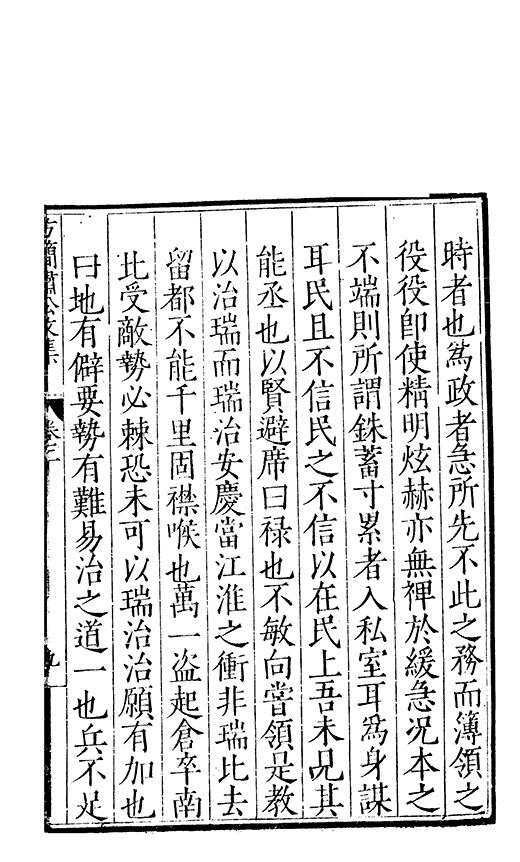 時者也為政者急所先不此之務而簿領之
役役即使精明炫赫亦無裨於緩急况本之
不端則所謂銖蓄寸累者入私室耳為身謀
耳民且不信民之不信以在民上吾未見其
能丞也以賢避席曰禄也不敏向嘗領是教
以治瑞而瑞治安慶當江淮之衝非瑞比去
留都不能千里固襟喉也萬一盜起倉卒南
北受敵勢必棘恐未可以瑞治治願有加也
曰地有僻要勢有難易治之道一也兵不足
方簡肅公文集
卷之
九